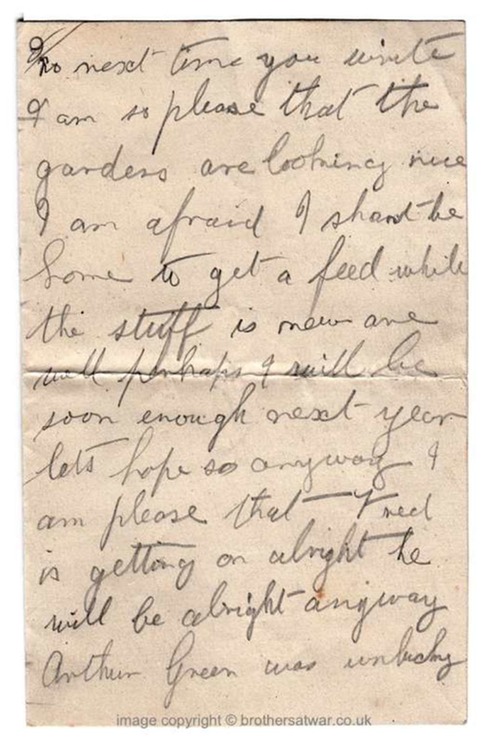 next time you write
I am so please that the
gardens are looking nice
I am afraid I shant be
home to get a feed while
the stuff is new are
well perhaps I will be
soon enough next year
lets hope so anyway I
am please that Fred
is getting on alright he
will be alright anyway
Arthur Green was unlucky
image copyright © brothersatwar.co.uk